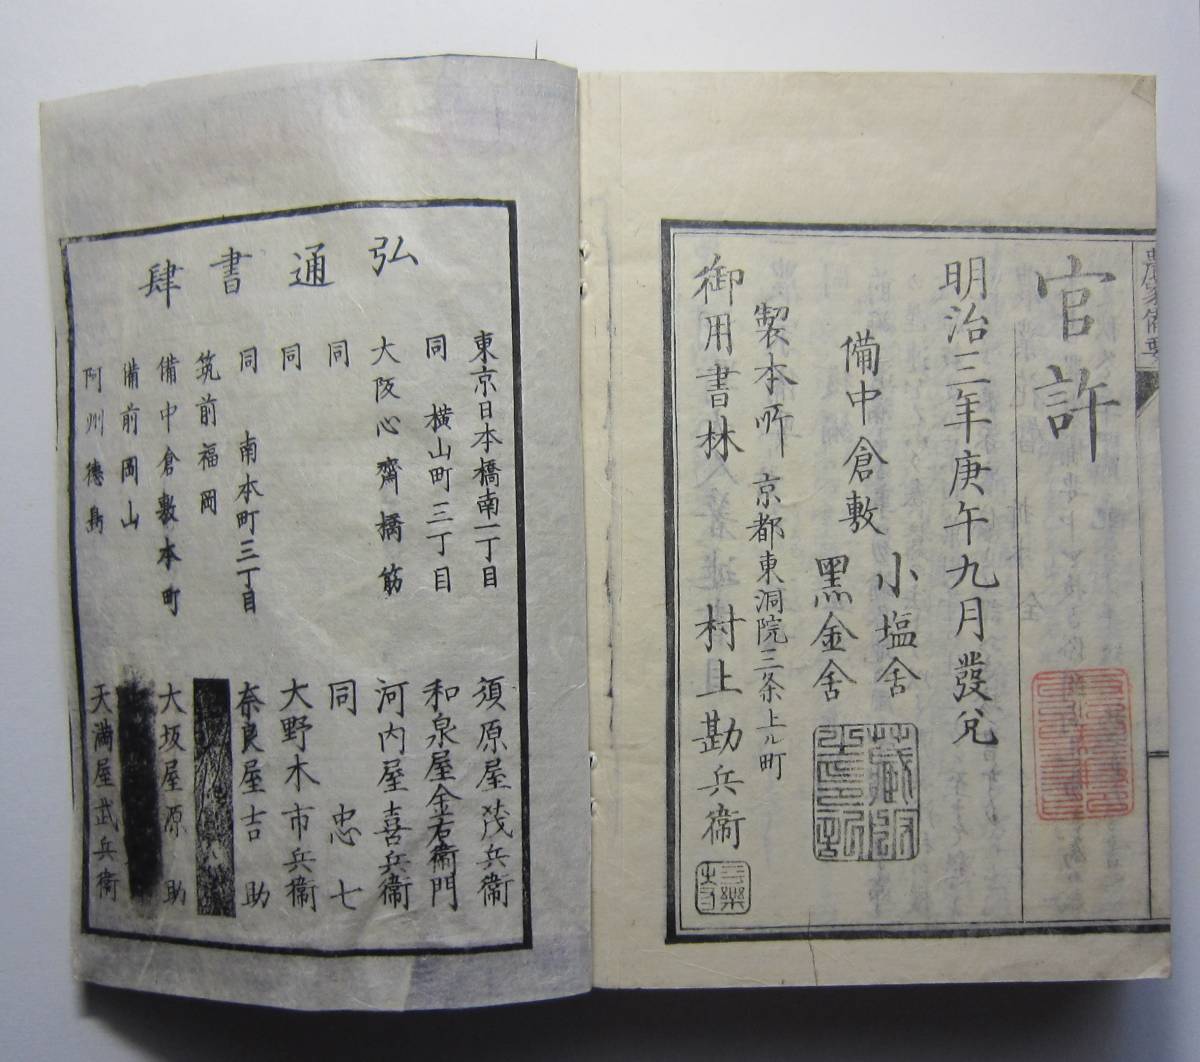 官許
明治三年庚午九月發兌
備中倉敷
小塩舍
黑金舍
製本所 京都東洞院三条上ル町
御用書林 村上勘兵衛
弘通書肆
東京日本橋南一丁目 須原屋茂兵衛
同 横山町三丁目 和泉屋金右衛門
大阪心齋橋筋 河内屋喜兵衛
同 同 忠七
同 大野木市兵衛
同 南本町三丁目 奈良屋吉助
筑前福岡
備中倉敷本町 大坂屋源助
備前岡山
阿州德島 天満屋武兵衛